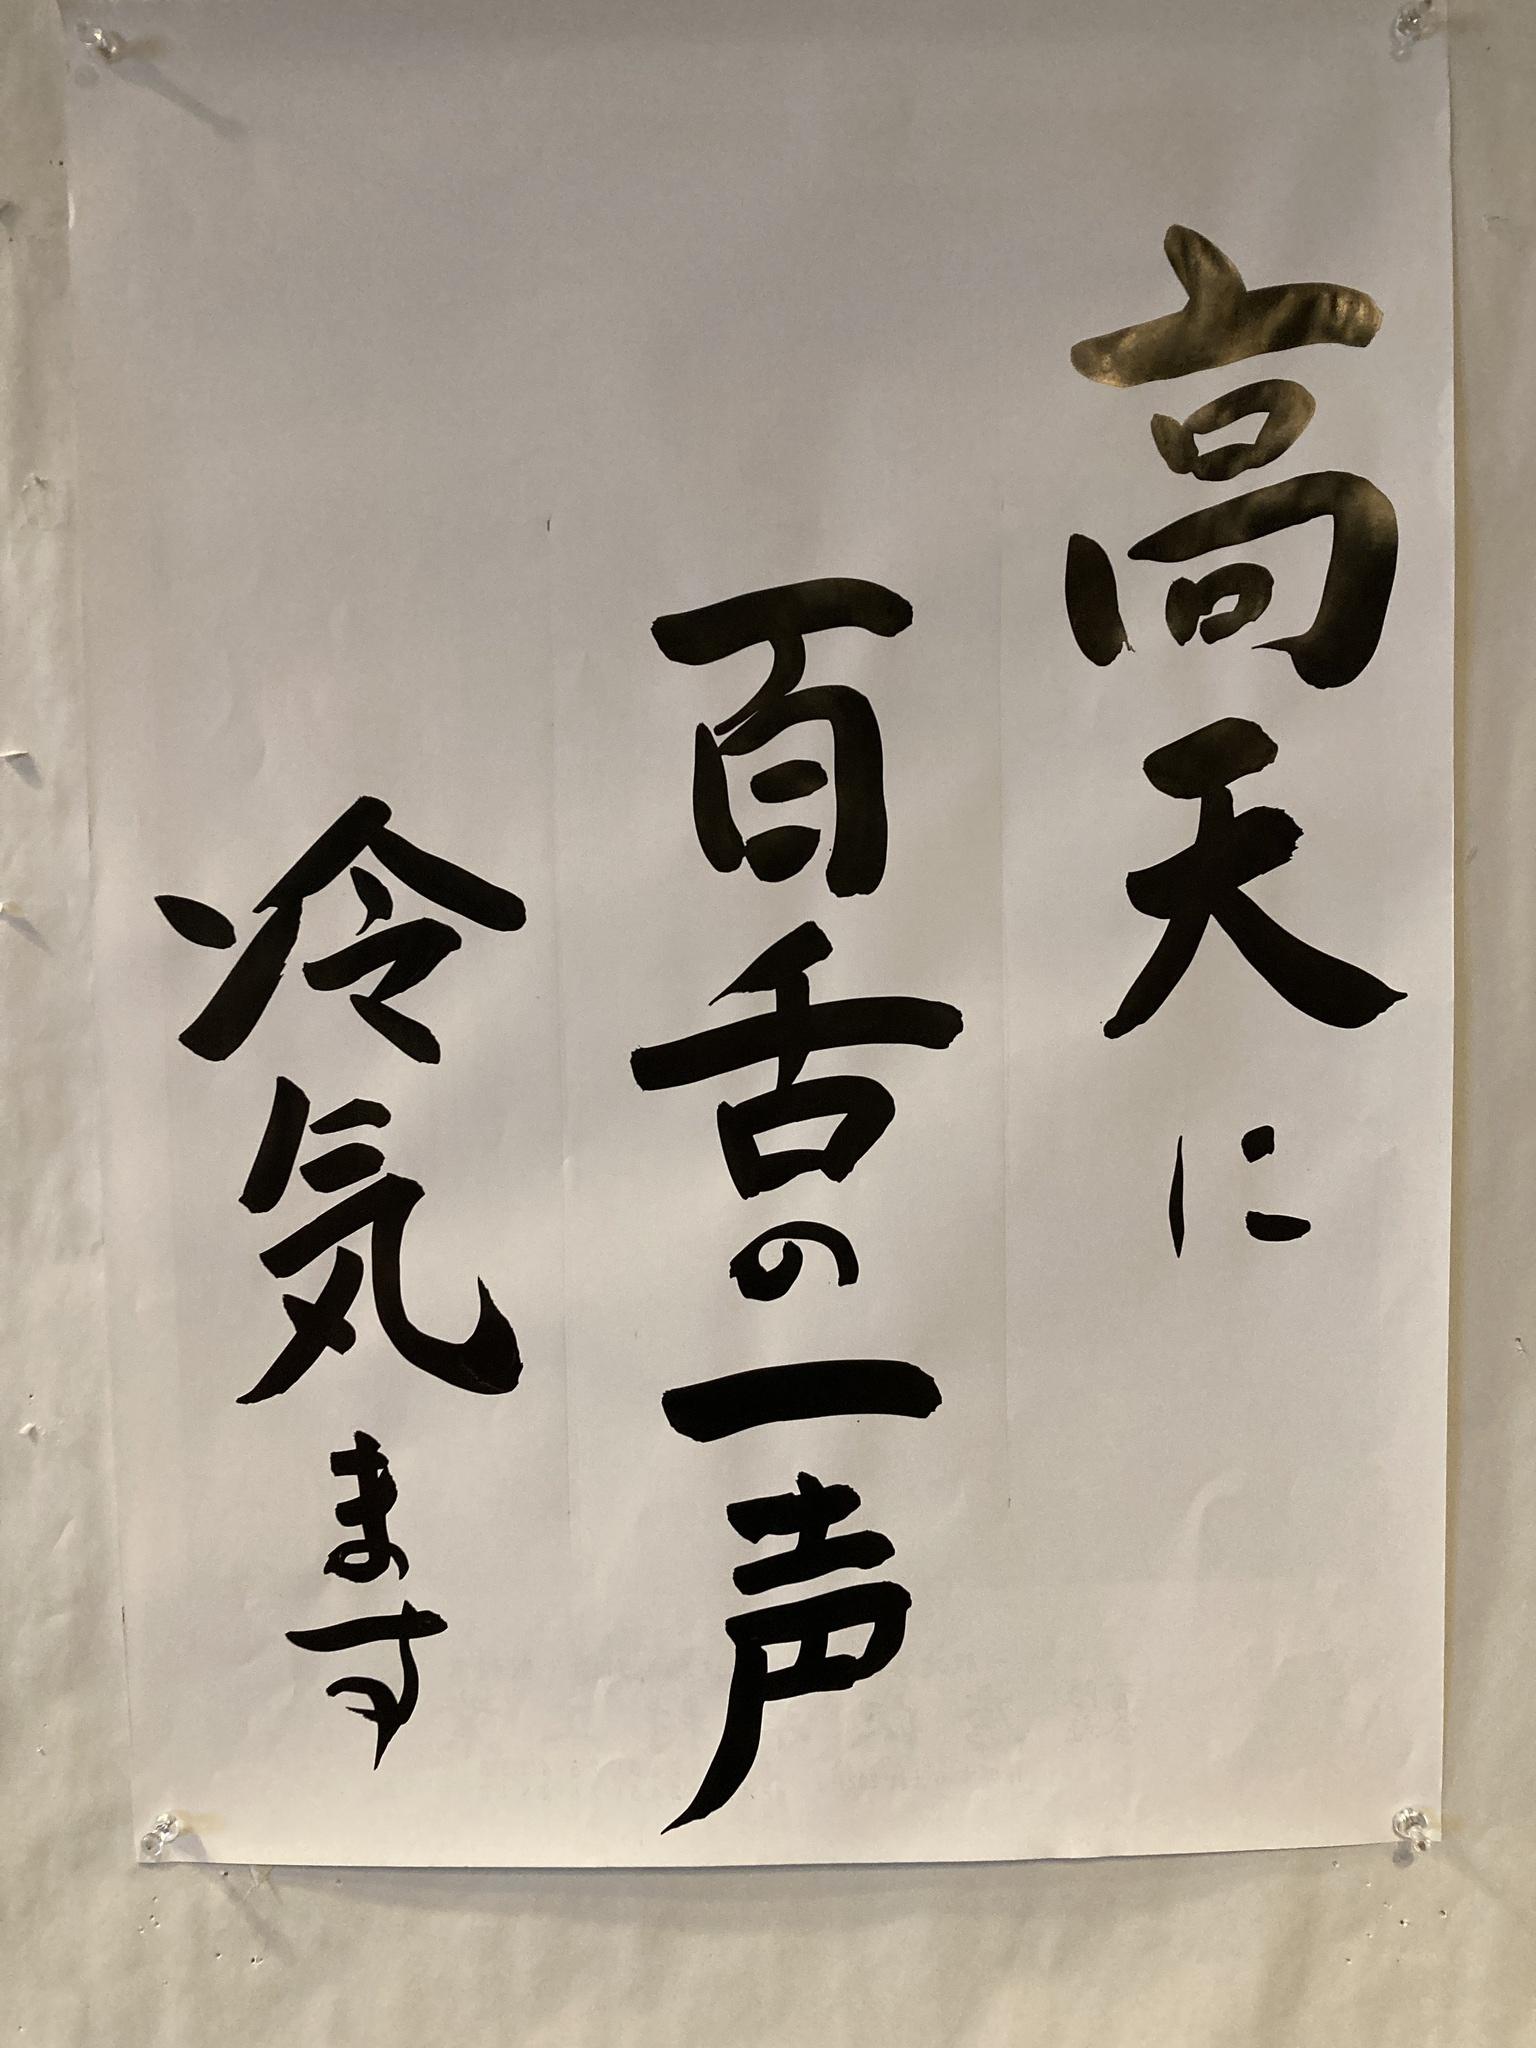 高天に
百舌の一声
冷気ます